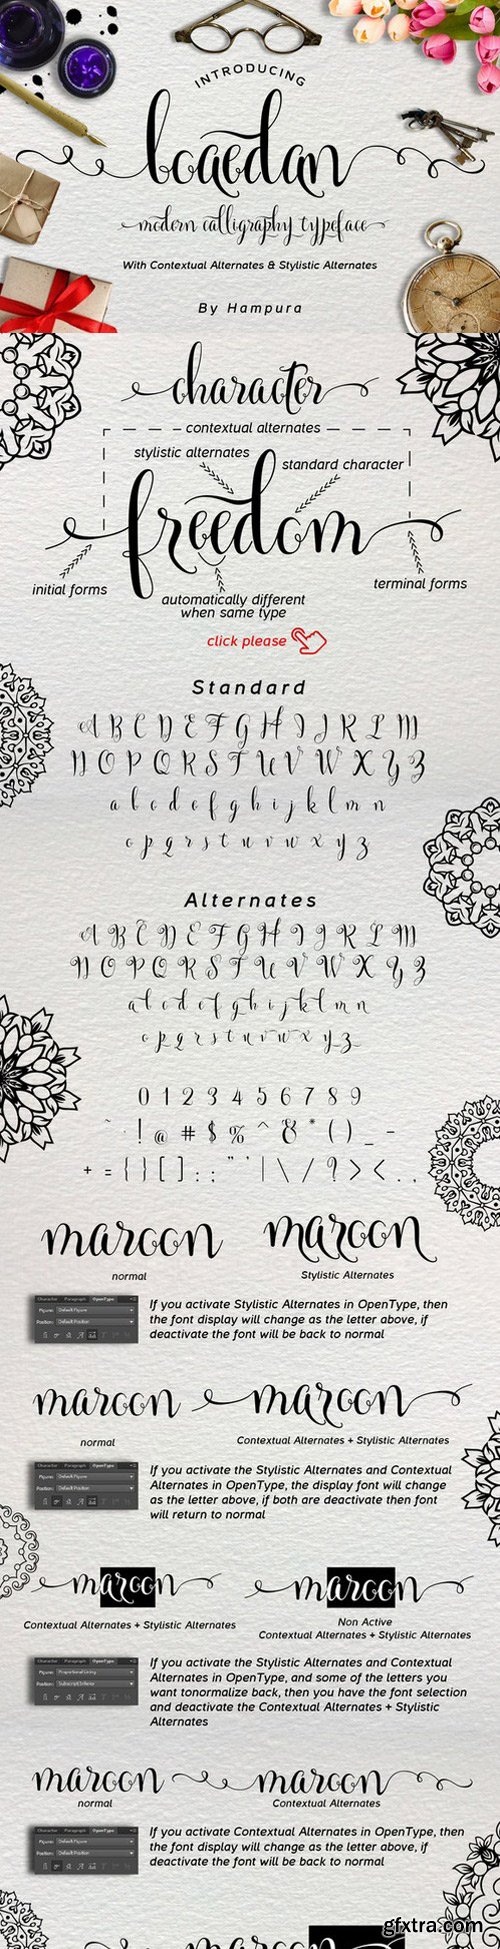 INTRODUCING
boaedan
modern calligraphy typeface
With Contextual Alternates & Stylistic Alternates
By Hampura
character
contextual alternates
stylistic alternates
standard character
freedom
initial forms
terminal forms
automatically different
when same type
click please
Standard
A B C D E F G H I J K L M
N O P Q R S T U V W X Y Z
a b c d e f g h i j k l m n
o p q r s t u v w x y z
Alternates
A B C D E F G H I J K L M
N O P Q R S T U V W X Y Z
a b c d e f g h i j k l m n
o p q r s t u v w x y z
0 1 2 3 4 5 6 7 8 9
~ · ! @ # $ % ^ & * ( ) _ -
+ = { } [ ] : ; " ' | \ / ? > < . ,
maroon maroon
normal Stylistic Alternates
Character Paragraph OpenType
Figure: Default Figure
Position: Default Position
If you activate Stylistic Alternates in OpenType, then
the font display will change as the letter above, if
deactivate the font will be back to normal
maroon maroon
normal Contextual Alternates + Stylistic Alternates
Character Paragraph OpenType
Figure: Default Figure
Position: Default Position
If you activate the Stylistic Alternates and Contextual
Alternates in OpenType, the display font will change
as the letter above, if both are deactivate then font
will return to normal
maroon maroon
Contextual Alternates + Stylistic Alternates
Non Active
Contextual Alternates + Stylistic Alternates
Character Paragraph OpenType
Figure: Proportional Lining
Position: Subscript/Inferior
If you activate the Stylistic Alternates and Contextual
Alternates in OpenType, and some of the letters you
want tonormalize back, then you have the font selection
and deactivate the Contextual Alternates + Stylistic
Alternates
maroon maroon
normal Contextual Alternates
Character Paragraph OpenType
Figure: Default Figure
Position: Default Position
If you activate Contextual Alternates in OpenType, then
the font display will change as the letter above, if
deactivate the font will be back to normal
gfxtra.com